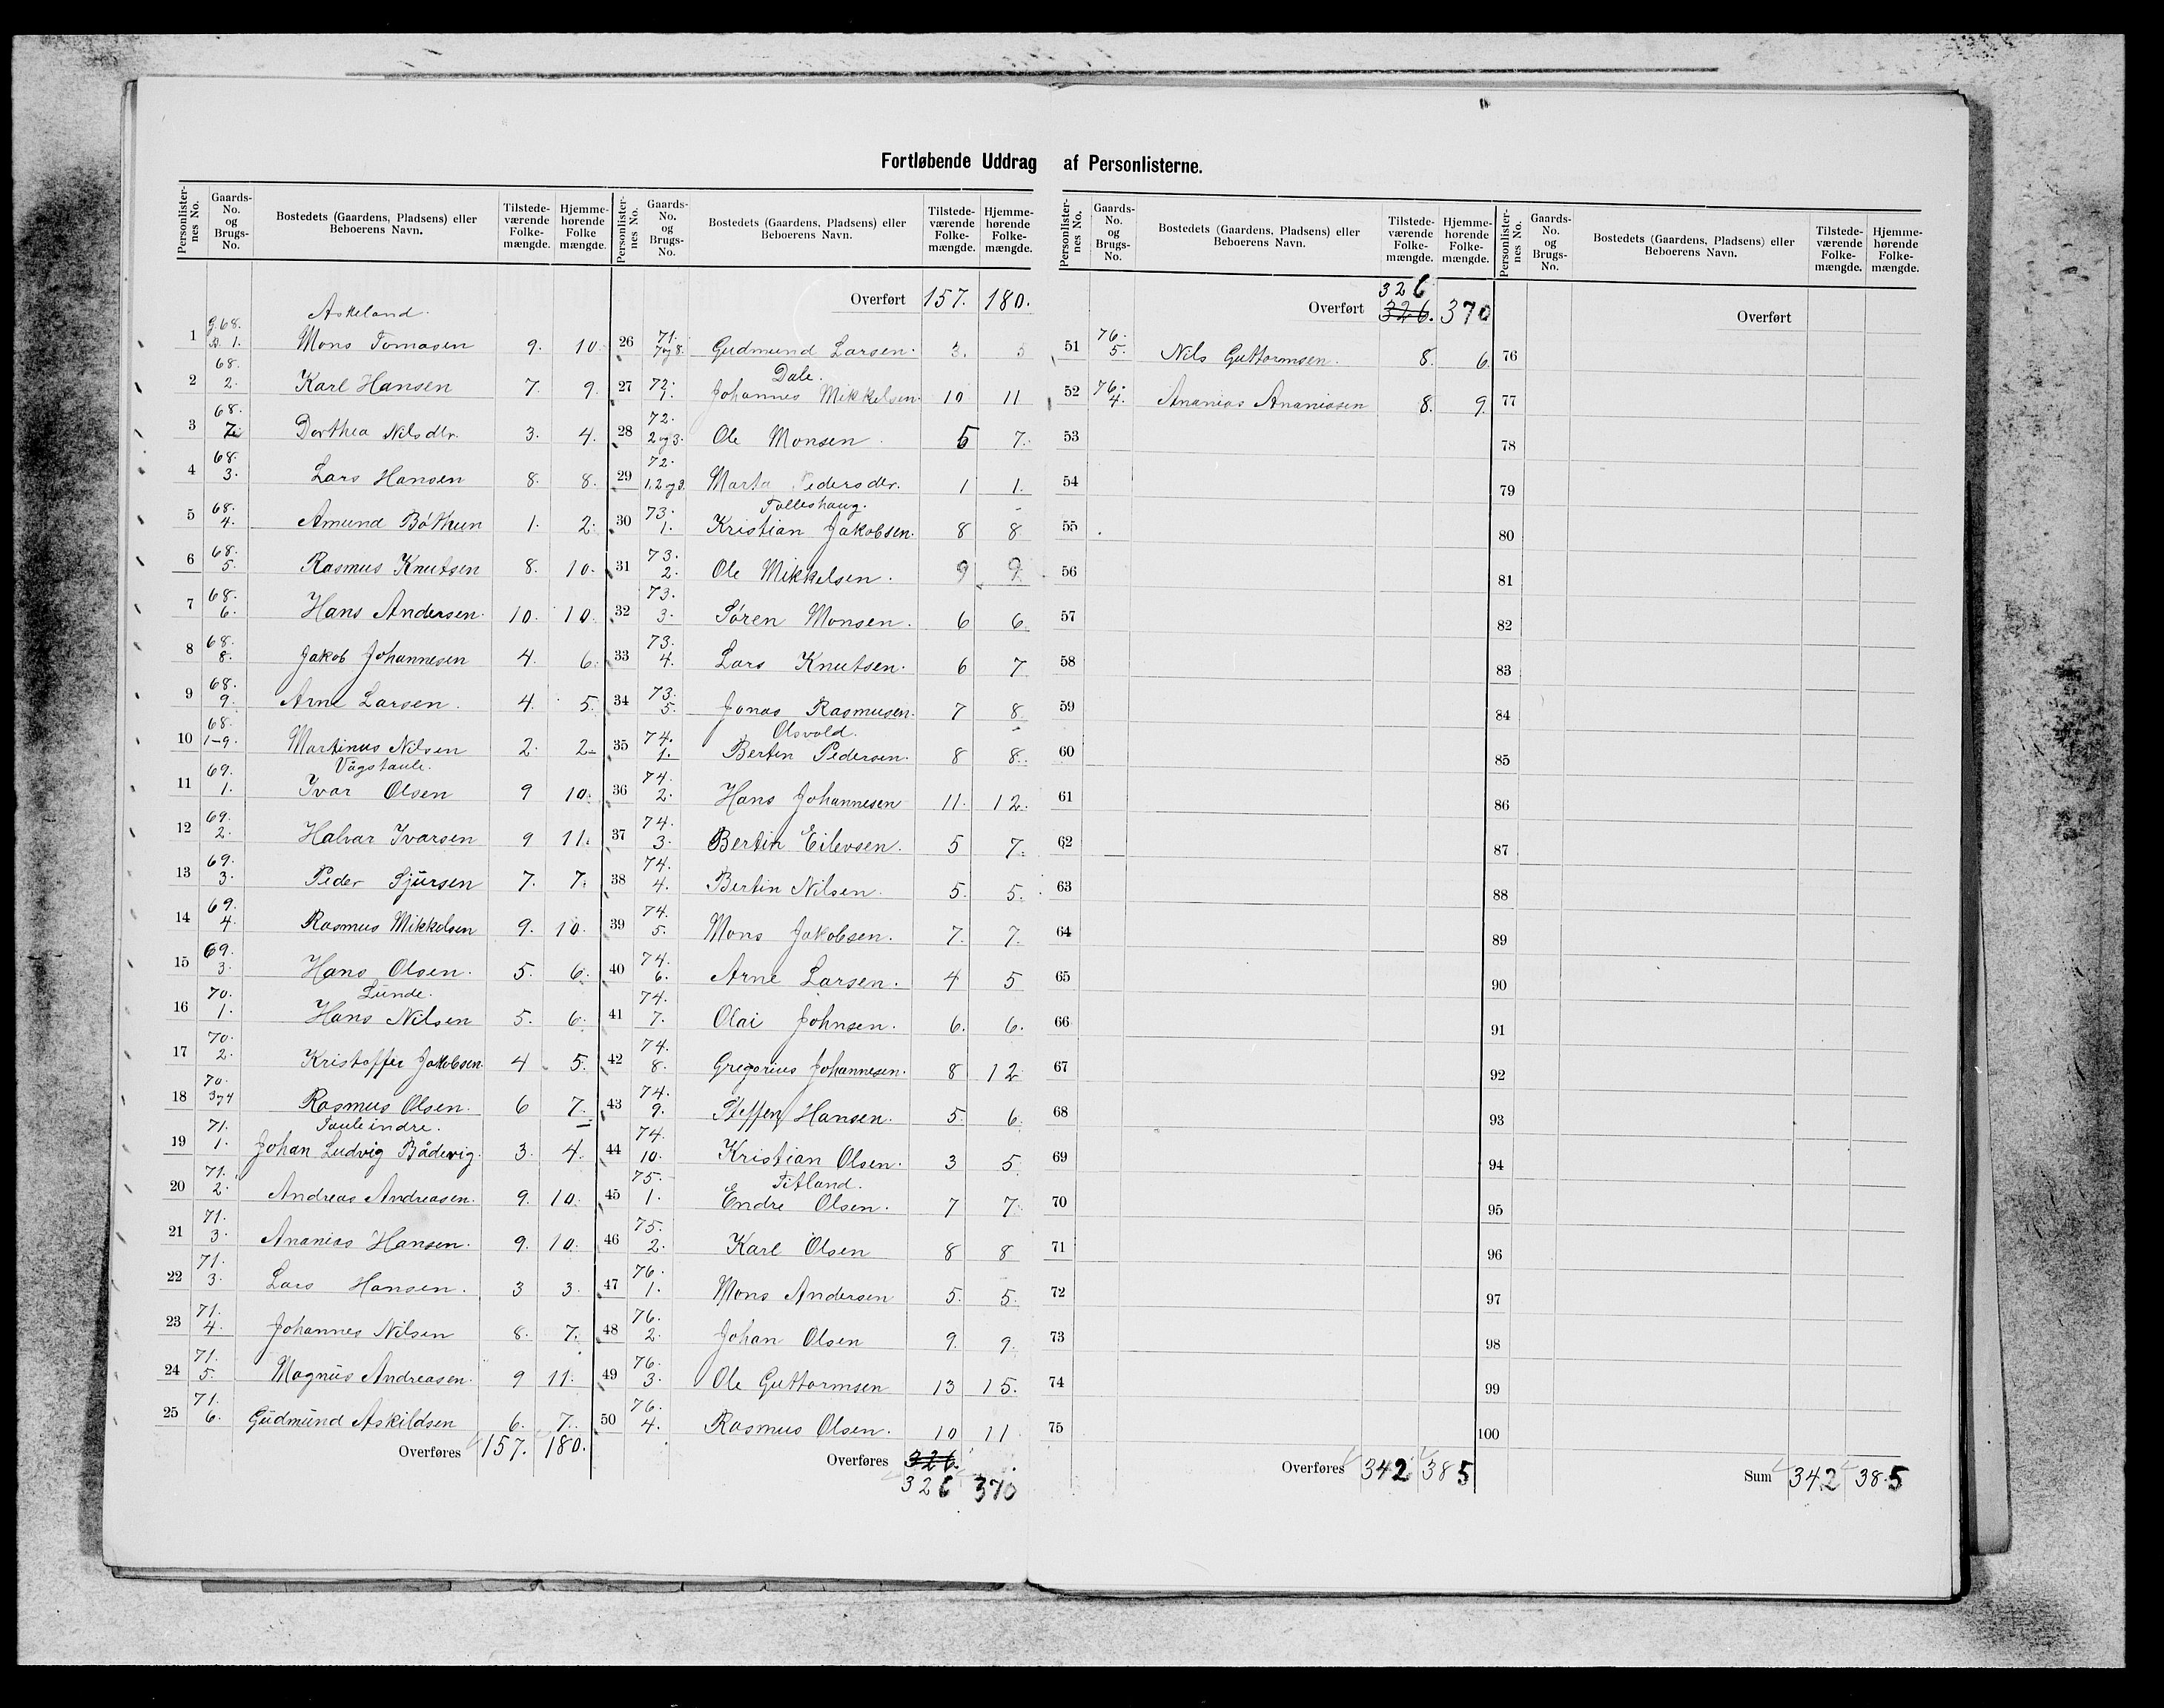 Fortløbende Uddrag af Personlisterne.
Personlister-nes No. Gaards-No. og Brugs-No. Bostedets (Gaardens, Pladsens) eller Beboerens Navn. Tilstede-værende Folke-mængde. Hjemme-hørende Folke mængde.
Askeland.
1 G. 68. B. 1. Mons Tomasen 9. 10.
2 68. 2. Karl Hansen 7. 9.
3 68. 7. Dorthea Nilsdtr. 3. 4.
4 68. 3. Lars Hansen 8. 8.
5 68. 4. Amund Bóthun 1. 2.
6 68. 5. Rasmus Knutsen 8. 10.
7 68. 6. Hans Andersen. 10. 10.
8 68. 8. Jakob Johannesen 4. 6.
9 68. 9. Arne Larsen. 4. 5.
10 68. 1-9. Martinus Nilsen 2. 2.
Vågstaule.
11 69. 1. Ivar Olsen 9 10.
12 69. 2. Halvar Ivarsen 9 11.
13 69. 3. Peder Sjursen 7. 7.
14 69. 4. Rasmus Mikkelsen 9. 10.
15 69. 3. Hans Olsen. 5. 6.
Lunde.
16 70. 1. Hans Nilsen 5. 6.
17 70. 2. Kristoffer Jakobsen. 4 5.
18 70. 3og4 Rasmus Olsen. 6 7.
Taule indre.
19 71. 1. Johan Ludvig Bådevig. 3. 4.
20 71. 2. Andreas Andreasen. 9. 10.
21 71. 3. Ananias Hansen. 9. 10.
22 71. 3. Lars Hansen. 3 3.
23 71. 4. Johannes Nilsen 8. 7.
24 71. 5. Magnus Andreasen. 9 11.
25 71. 6. Gudmund Askildsen 6. 7.
Overføres 157. 180.
Personlister-nes No. Gaards-No. og Brugs-No. Bostedets (Gaardens, Pladsens) eller Beboerens Navn. Tilstede-værende Folke-mængde. Hjemme-hørende Folke-mængde.
Overført 157. 180.
26 71. 7og8. Gudmund Larsen. 3. 3
Dale.
27 72. 1. Johannes Mikkelsen. 10 11
28 72. 2og3. Ole Monsen. 5 7.
29 72. 1,2og3. Marta Pedersdtr. 1 1.
Folleshaug.
30 73. 1. Kristian Jakobsen. 8 8
31 73. 2. Ole Mikkelsen. 9 9.
32 73. 3. Sóren Monsen. 6 6.
33 73. 4. Lars Knutsen. 6 7
34 73. 5. Jonas Rasmusen. 7 8.
Olsvold.
35 74. 1. Bertin Pedersen. 8 8.
36 74. 2. Hans Johannesen 11. 12.
37 74. 3. Bertin Eilevsen. 5 7.
38 74. 4. Bertin Nilsen. 5. 5.
39 74. 5. Mons Jakobsen. 7. 7.
40 74. 6. Arne Larsen. 4 5
41 74. 7. Olai Johnsen. 6. 6.
42 74. 8. Gregorius Johannesen. 8 12
43 74. 9. Steffen Hansen. 5. 6.
44 74. 10. Kristian Olsen. 3 5.
Titland.
45 75. 1. Endre Olsen. 7 7.
46 75. 2. Karl Olsen 8 8
47 76. 1. Mons Andersen 5. 5.
48 76. 2. Johan Olsen 9. 9.
49 76. 3. Ole Guttormsen 13 15.
50 76. 4. Rasmus Olsen. 10 11
Overføres 326.
326 370
Personlister-nes No. Gaards-No. og Brugs-No. Bostedets (Gaardens, Pladsens) eller Beboerens Navn. Tilstede-værende Folke-mængde. Hjemme-hørende Folke-mængde.
326
Overført 326. 370
51 76. 5. Nils Guttormsen. 8. 6.
52 76. 4. Ananias Ananiasen 8. 9.
53
54
55
56
57
58
59
60
61
62
63
64
65
66
67
68
69
70
71
72
73
74
75
Overføres 342 385
Personlister-nes No. Gaards-No. og Brugs-No. Bostedets (Gaardens, Pladsens) eller Beboerens Navn. Tilstede-værende Folke-mængde. Hjemme-hørende Folke-mængde.
Overført
76
77
78
79
80
81
82
83
84
85
86
87
88
89
90
91
92
93
94
95
96
97
98
99
100
Sum 342 385